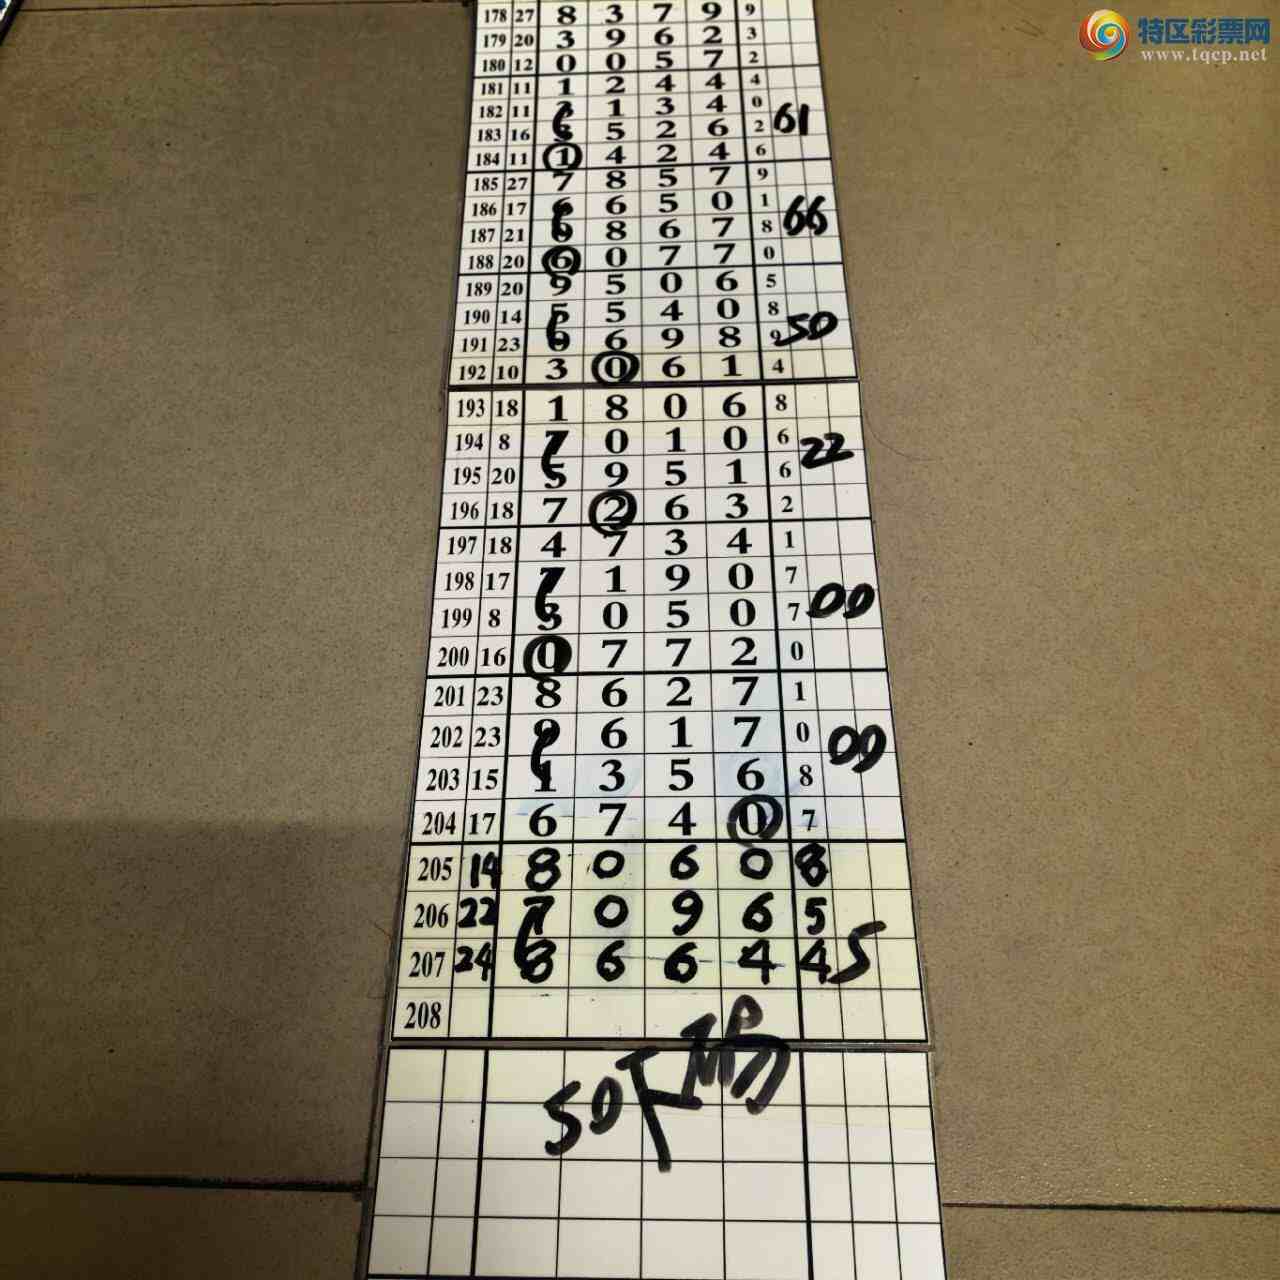 特区彩票网
www.tqcp.net
178 27 8 3 7 9 9
179 20 3 9 6 2 3
180 12 0 0 5 7 2
181 11 1 2 4 4 4
182 11 1 3 4 0
61
183 16 5 2 6 2
184 11 1 4 2 4 6
185 27 7 8 5 7 9
186 17 6 6 5 0 1
66
187 21 8 6 7 8
188 20 6 0 7 7 0
189 20 9 5 0 6 5
190 14 5 5 4 0 8
50
191 23 6 9 8 9
192 10 3 0 6 1 4
193 18 1 8 0 6 8
194 8 7 0 1 0 6
22
195 20 5 9 5 1 6
196 18 7 2 6 3 2
197 18 4 7 3 4 1
198 17 7 1 9 0 7
00
199 8 3 0 5 0 7
200 16 0 7 7 2 0
201 23 8 6 2 7 1
202 23 9 6 1 7 0
00
203 15 1 3 5 6 8
204 17 6 7 4 0 7
205 14 8 0 6 0 8
206 22 7 0 9 6 5
207 24 8 6 6 4 4 5
208
50下